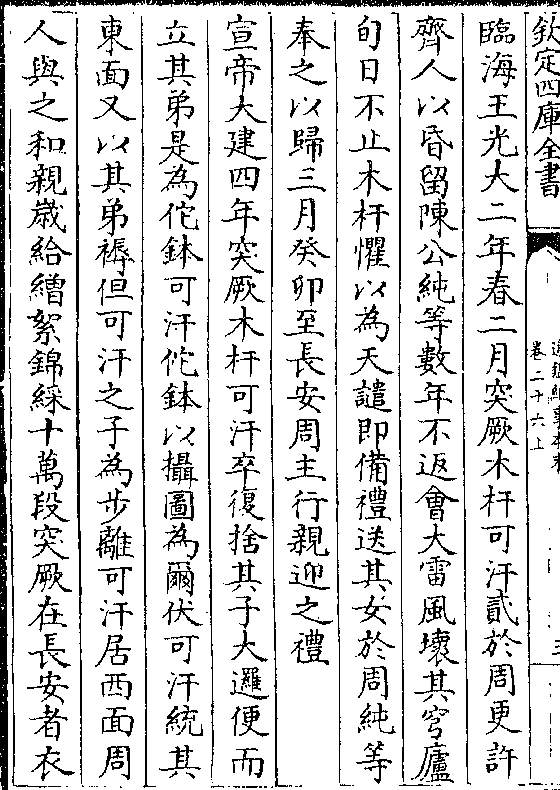 欽定四庫全書
卷二十六上
臨海王光大二年春二月突厥木杆可汗貳於周更許
齊人以昏留陳公純等數年不返會大雷風壞其穹廬
旬日不止木杆懼以為天譴即備禮送其女於周純等
奉之以歸三月癸卯至長安周主行親迎之禮
宣帝大建四年突厥木杆可汗卒復捨其子大邏便而
立其弟是為佗鉢可汗佗鉢以攝圖為爾伏可汗統其
東面又以其弟褥但可汗之子為步離可汗居西面周
人與之和親歲給繒絮錦綵十萬段突厥在長安者衣